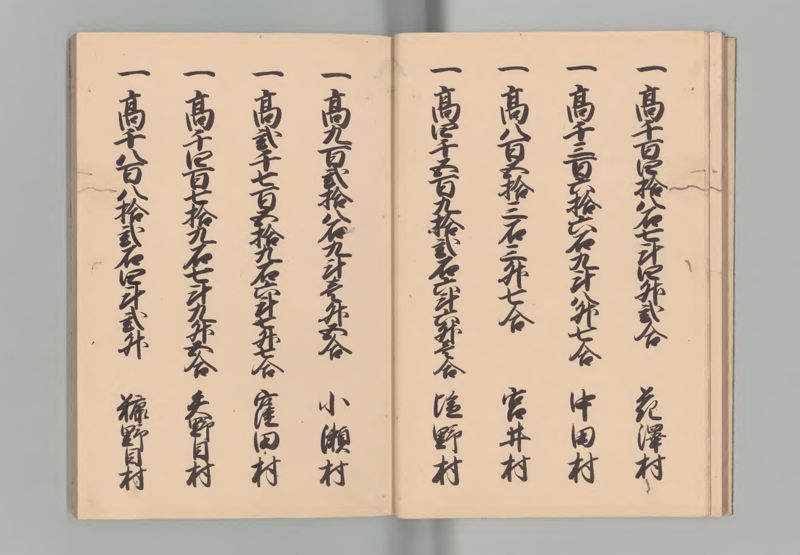 一高千百四拾八石七斗四升弐合 花澤村
一高千三百六拾六石九斗八升七合 中田村
一高八百五拾三石三升七合 宮井村
一高四千五百九拾弐石六斗六升壱合 塩野村
一高九百弐拾八石九斗壱升五合 小瀬村
一高弐千七百五拾九石六斗七升七合 窪田村
一高千四百七拾九石七斗九升五合 矢野目村
一高千八百八拾弐石四斗弐升 糠野目村